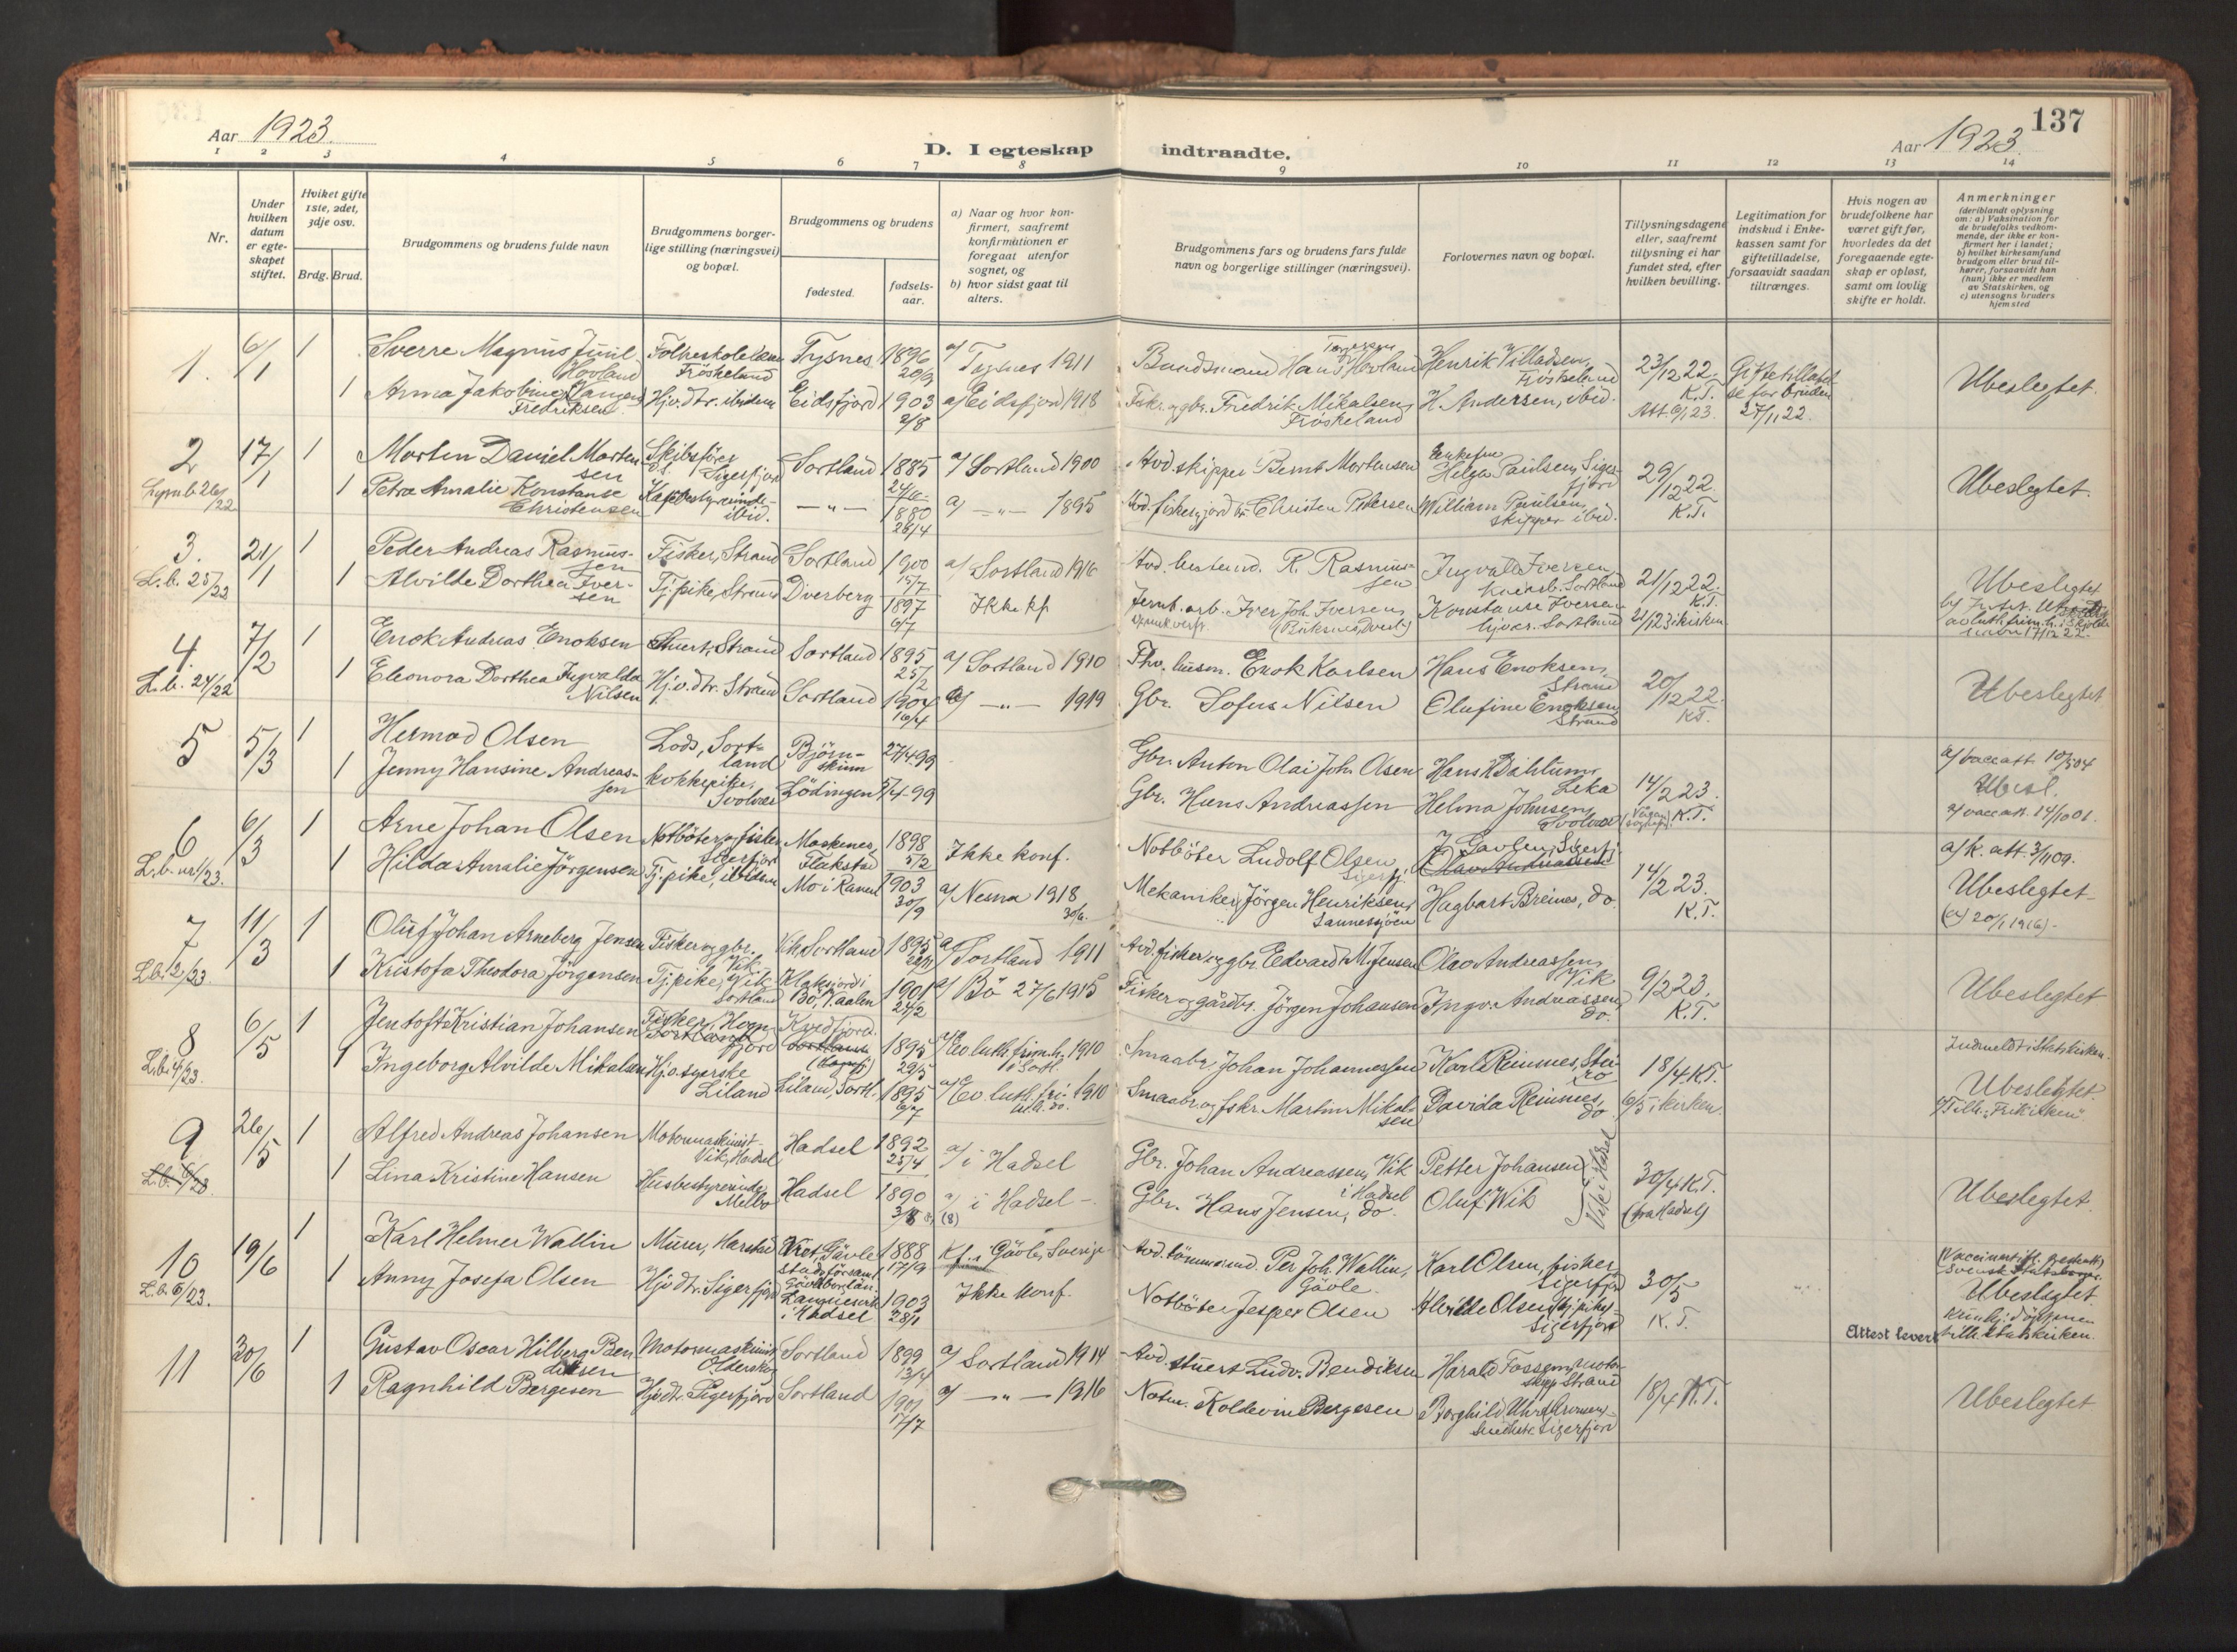 137
Aar 1923.
D. I egteskap indtraadte.
Aar 1923.
1 2 3 4 5 6 7 8 9 10 11 12 13 14
Nr.
Under hvilken datum er egte-skapet stiftet.
Hviket gifte 1ste, 2det, 3dje osv.
Brdg. Brud.
Brudgommens og brudens fulde navn
Brudgommens borger-lige stilling (næringsvei) og bopæl.
Brudgommens og brudens
fødested.
fødsels-aar.
a) Naar og hvor kon-firmert, saafremt konfirmationen er foregaat utenfor sognet, og
b) hvor sidst gaat til alters.
Brudgommens fars og brudens fars fulde navn og borgerlige stillinger (næringsvei).
Forlovernes navn og bopæl.
Tillysningsdagene eller, saafremt tillysning ei har fundet sted, efter hvilken bevilling.
Legitimation for indskud i Enke-kassen samt for giftetilladelse, forsaavidt saadan tiltrænges.
Hvis nogen av brudefolkene har været gift før, hvorledes da det foregaaende egte-skap er opløst, samt om lovlig skifte er holdt.
Anmerkninger (deriblandt oplysning om: a) Vaksination for de brudefolks vedkom-mende, der ikke er kon-firmert her i landet; b) hvilket kirkesamfund brudgom eller brud til-hører, forsaavidt han (hun) ikke er medlem av Statskirken, og c) utensogns bruders hjemsted
1. 6/1 1 Sverre Magnus Juul Hovland Fröskeland Tysnes 1896 20/9 a) Tysnes 1911 Hans Hovland Henrik Villadsen, Fröskeland 23/12 22. K.T. Giftetilladelse for bruden 27/11 22. Ubeslegtet.
1 Anna Jakobine Fredriksen Hjv. dtr. ibidem Eidsfjord 1903 2/8 a) Eidsfjord 1918 Fisk. og gbr. Fredrik Mikalsen, Fröskeland H. Andersen, ibid. Att. 6/1 23.
2 17/1 1 Morten Daniel Mortensen Skibsförer Sigerfjord Sortland 1885 a) Sortland 1900 Avd. skipper Bernt Mortensen Helga Paulsen, Sigerfjord 29/12 22. K.T. Ubeslegtet.
1 Petra Amalie Konstanse Christensen ibid. — „ — 1880 26/4 a) — „ — 1895 Christen Pedersen William Paulsen, skipper ibid.
3. L.b. 25/22 21/1 1 Peder Andreas Rasmussen Fisker, Strand Sortland 1900 15/7 a) Sortland 1916 R. Rasmussen Ingvald Iversen, Sortland 21/12 22. K.T. Ubeslegtet
1 Alvilde Dorthea Iversen Tj. pike, Strand Dverberg 1897 6/7 Ikke kf. Iver Joh. Iversen Konstanse Iversen Sortland 21/1 23 i kirken
4. L.b. 24/22 7/2 1 Enok Andreas Enoksen Stuert, Strand Sortland 1895 25/2 a) Sortland 1910 Fhv. husm. Enok Karlsen Hans Enoksen, Strand 20/12 22. K.T. Ubeslegtet
1 Eleonora Dorthea Ingvalda Nilsen Hjv. dtr. Strand Sortland 1904 16/4 a) — „ — 1919 Gbr. Sofus Nilsen Olufine Enoksen, Strand
5 5/3 1 Hermod Olsen Lods, Sortland Björnskinn 27/4-99 Gbr. Anton Olai Joh. Olsen Hans Dahlum, Leka 14/2 23. K.T. a) vacc att 10/5 04 Ubesl.
1 Jenny Hansine Andreassen kokkepike, Svolvær Lödingen 5/4-99 Gbr. Hans Andreassen Helma Johnsen, Svolvær a) vacc att. 14/10 01.
6 L.b. nr 1/23. 6/3 1 Arne Johan Olsen Notböter og fisker Sigerfjord Moskenes, Flakstad 1898 5/2 Ikke konf. Notböter Ludolf Olsen Sigerfj. 14/2 23. K.T. a) k. att. 3/11 09. Ubeslegtet
1 Hilda Amalie Jörgensen Tj. pike, ibidem Mo i Ranen 1903 30/9 a) Nesna 1918 30/6. Mekaniker Jörgen Henriksen, Sannessjöen Hagbart Breines, do. (a) 20/1 1916).
7 L.b. 2/23. 11/3 1 Oluf Johan Arneberg Jensen Fisker og gbr. Vik Vik, Sortland 1895 a) Sortland 1911 Avd. fisker og gbr. Edvardt M. Jensen Olav Andreassen, Vik 9/2 23. K.T. Ubeslegtet
1 Kristofa Theodora Jörgensen Tj. pike, Vik Sortland Bö, V.aalen 1901 24/2 a) Bö 27/6 1915 Fisker og gårdbr. Jörgen Johansen Ingv. Andreassen, do.
8 L.b. 4/23. 6/5 1 Jentoft Kristian Johansen Fisker, Sortland Kvedfjord. 1895 29/5 a) Ev. luth. frim.h. 1910 i Sortl. Smaabr. Johan Johannessen Karl Reinnes, Stei-ro 18/4 K.T. Indmeldt i Statskirken. Ubeslegtet.
1 Ingeborg Alvilde Mikalsen Hjv. syerske Liland Liland, Sortl. 1895 6/7 a) Ev. luth. fri- 1910 Smaabr. og fskr. Martin Mikalsen Davida Reinnes, do 6/5 i kirken. Tilh. "Frikirken".
9 L.b. 6/23 26/5 1 Alfred Andreas Johansen Motormaskinist Vik, Hadsel Hadsel 1892 25/4 a) i Hadsel Gbr. Johan Andreassen, Vik i Hadsel Petter Johansen Vik i Hadsel 30/4 K.T. (fra Hadsel) Ubeslegtet.
1 Lina Kristine Hansen Husbestyrerinde, Melbo Hadsel 1890 3/8 a) i Hadsel – Gbr. Hans Jensen, do. Oluf Wik
10 L.b. 6/23. 19/6 1 Karl Helmer Wallin Murer, Harstad Gävle stadsförsaml. Gävleborgs län. 1888 17/9 Kf. i Gävle, Sverige Avd. tömmermd. Per Joh. Wallin, Gävle. Karl Olsen, fisker Sigerfjord 30/5 K.T. Ubeslegtet
1 Anny Josefa Olsen Hjv dtr. Sigerfjord Hadsel 1903 28/1 Ikke konf. Notböter Jesper Olsen Alvilde Olsen, tj.pike, Sigerfjord tilh. Statskirken.
Attest levert
11 30/6 1 Gustav Oscar Hilberg Bendiksen Motormaskinist Olderskog Sortland 1899 13/4 a) Sortland 1914 Avd stuert Ludv. Bendiksen Harald Fossem, Strand 18/4 K.T. Ubeslegtet
1 Ragnhild Bergesen Hjv dtr. Sigerfjord Sortland 1901 17/7 a) — „ — 1916 Notm. Koldevin Bergesen Borghild Sigerfjord